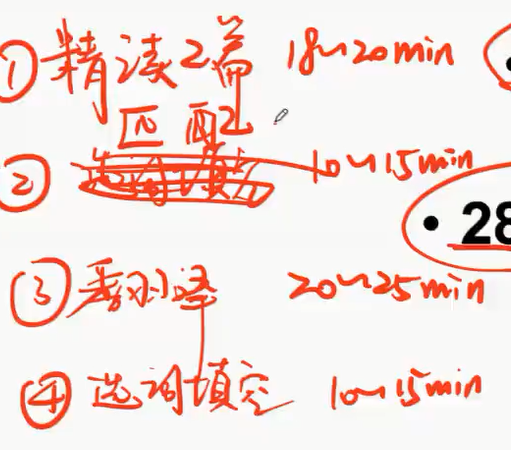 ① 精读2篇 18~20min
匹配
② 选词填空 10~15min
• 28
③ 翻译 20~25min
④ 选词填空 10~15min